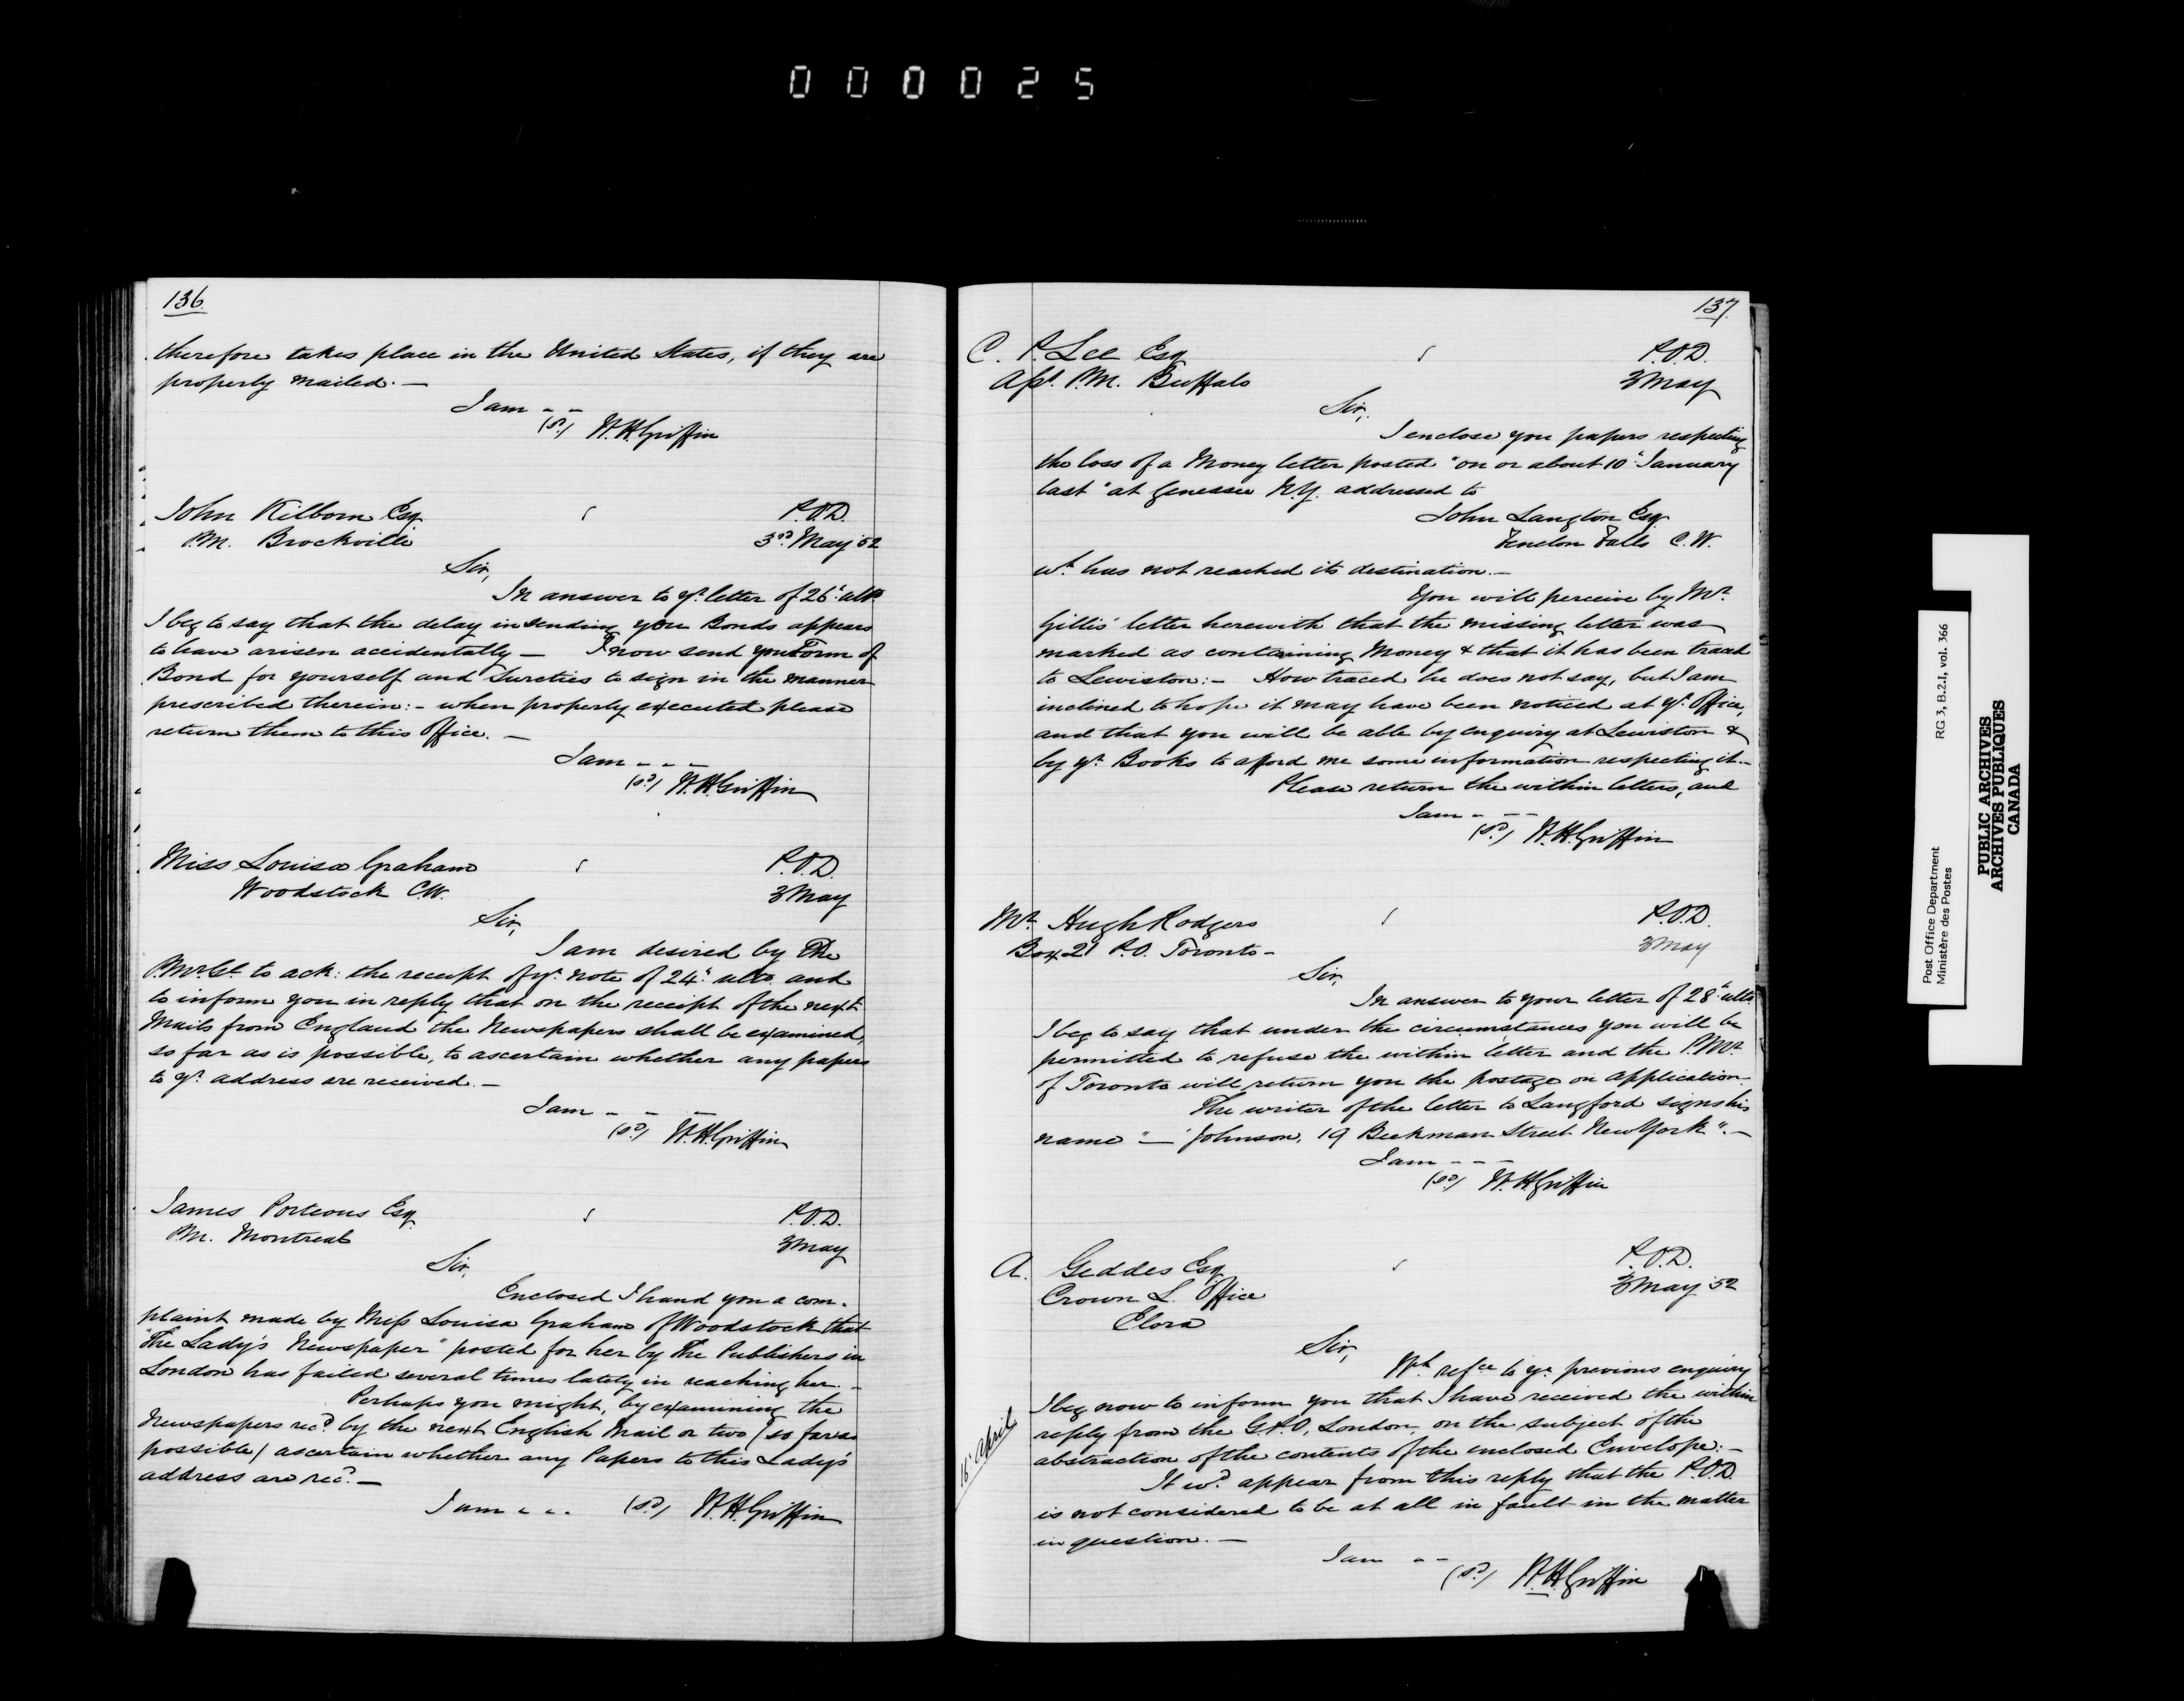 000025
136.
therefore takes place in the United States, if they are
properly mailed. —
I am - -
(sd.) W.H. Griffin
John Kilborn Esq P.O.D.
P.M. Brockville 3rd May '52
Sir,
In answer to yr. letter of 26th ulto
I beg to say that the delay in sending you Bonds appears
to have arisen accidentally — I now send you Form of
Bond for yourself and Sureties to sign in the manner
prescribed therein: - when properly executed please
return them to this Office. —
I am - - -
(sd.) W.H. Griffin
Miss Louisa Graham P.O.D.
Woodstock C.W. 3 May
Sir,
I am desired by The
P.Mr.Gl. to ack: the receipt of yr. note of 24th ulto. and
to inform you in reply that on the receipt of the next
Mails from England the Newspapers shall be examined,
so far as is possible, to ascertain whether any papers
to yr. address are received. —
I am - - -
(sd.) W.H. Griffin
James Porteous Esq. P.O.D.
P.M. Montreal 3 May
Sir,
Enclosed I hand you a com-
plaint made by Miss Louisa Graham of Woodstock that
"The Lady's Newspaper" posted for her by The Publishers in
London has failed several times lately in reaching her. —
Perhaps you might, by examining the
Newspapers recd. by the next English Mail or two (so far as
possible) ascertain whether any Papers to this Lady's
address are recd. —
I am - - - (sd.) W.H. Griffin
137.
C. P. Lee Esq P.O.D.
Asst. P.M. Buffalo 3 May
Sir,
I enclose you papers respecting
the loss of a Money letter posted "on or about 10th January
last" at Genessee N.Y. addressed to
John Langton Esq
Fenelon Falls C.W.
wh. has not reached its destination. —
You will perceive by Mr.
Gillis' letter herewith that the missing letter was
marked as containing Money & that it has been traced
to Lewiston: - How traced he does not say, but I am
inclined to hope it may have been noticed at yr. Office,
and that you will be able by enquiry at Lewiston &
by yr. Books to afford me some information respecting it. —
Please return the within letters, and
I am - - -
(sd.) W.H. Griffin
Mr. Hugh Rodgers P.O.D.
Box 21 P.O. Toronto - 3 May
Sir,
In answer to your letter of 28th ulto
I beg to say that under the circumstances you will be
permitted to refuse the within letter and the P.Mr.
of Toronto will return you the postage on application.
The writer of the letter to Langford signs his
name " — Johnson, 19 Beekman Street New York". —
I am - - -
(sd.) W.H. Griffin
A. Geddes Esq P.O.D.
Crown L. Office 3 May '52
Elora
Sir,
Wh. refce to yr. previous enquiry
16th April
I beg now to inform you that I have received the within
reply from the G.P.O, London, on the subject of the
abstraction of the contents of the enclosed Envelope: —
It wd. appear from this reply that the P.O.D.
is not considered to be at all in fault in the matter
in question. —
I am - -
(sd.) W.H. Griffin
Post Office Department RG 3, B.2.I, vol. 366
Ministère des Postes
PUBLIC ARCHIVES
ARCHIVES PUBLIQUES
CANADA